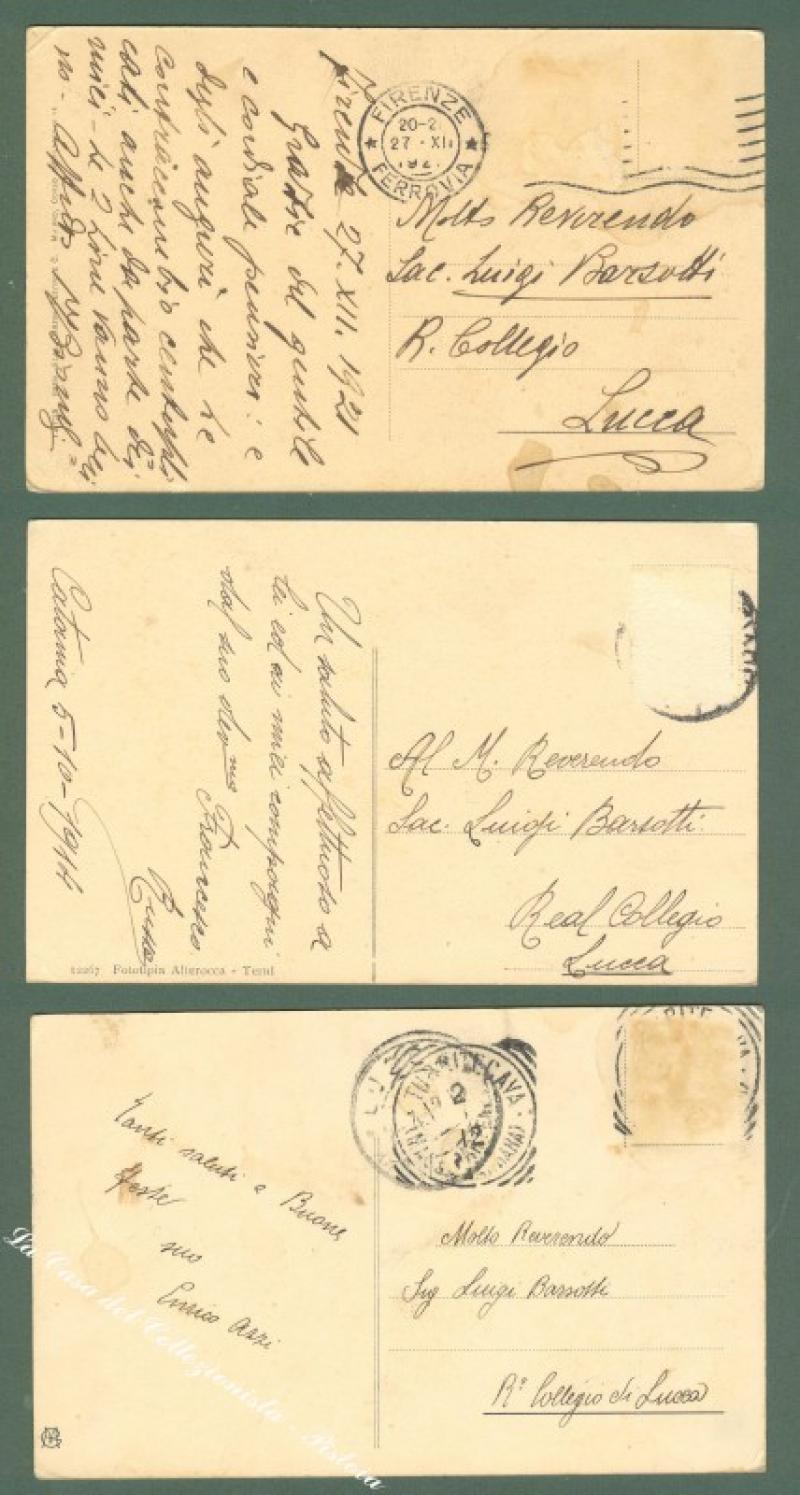 FIRENZE
20-2
27·XII
192
FERROVIA
Firenze 27. XII. 1921
Grazie del gentile
e cordiale pensiero: e
degli auguri che le
contraccambio centupli
cati anche da parte dei
miei - le 2 zine vanno be
no -
Molto Reverendo
Sac. Luigi Barsotti
R. Collegio
Lucca
Un saluto affettuoso a
lei ed ai miei compagni
dal suo devmo Francesco
Russo
Catania 5-10-1914
Al M. Reverendo
Sac. Luigi Barsotti
Real Collegio
Lucca
12267 Fototipia Alterocca - Terni
TURRITECAVA
2
12
Tanti saluti e Buone
feste
suo
Enrico Azzi
Molto Reverendo
Sig Luigi Barsotti
Ro Collegio di Lucca
La Casa del Collezionista - Pistoia